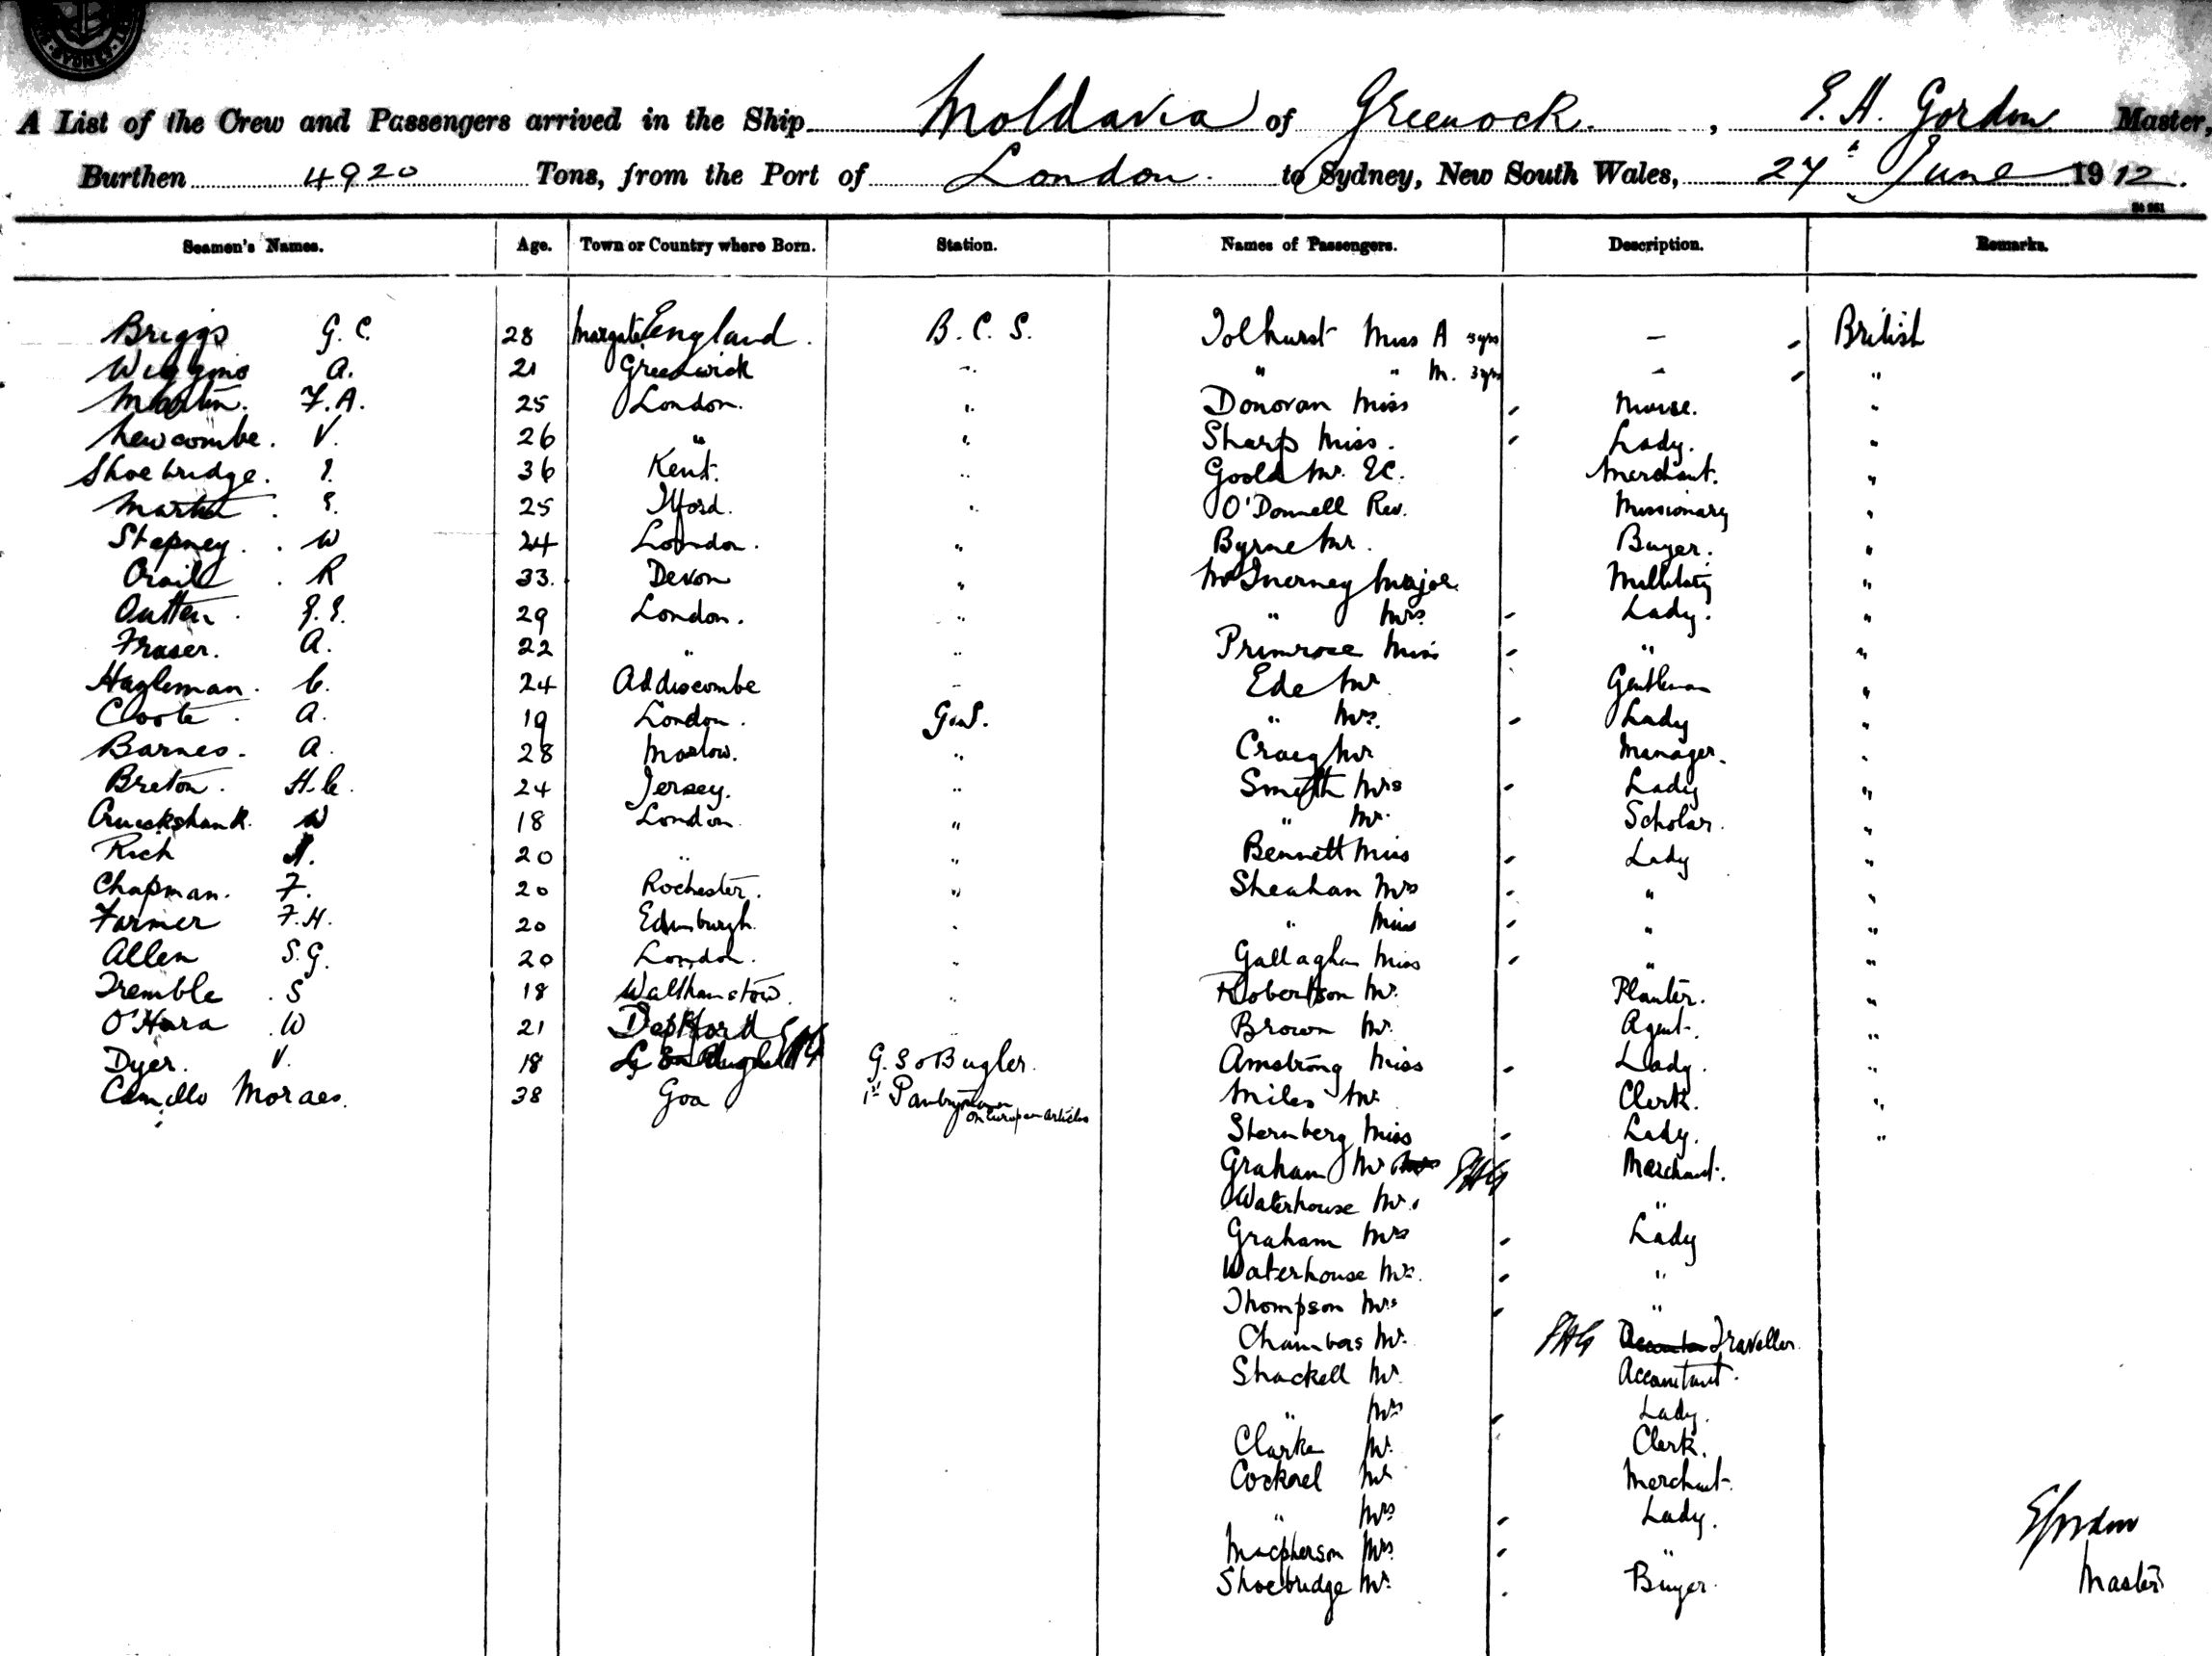 SYDNEY
A List of the Crew and Passengers arrived in the Ship Moldavia of Greenock. , E. A. Gordon Master,
Burthen 4920 Tons, from the Port of London. to Sydney, New South Wales, 27th June 1912.
Seamen's Names. Age. Town or Country where Born. Station. Names of Passengers. Description. Remarks.
Briggs G. C. 28 Margate England. B. C. S. Tolhurst Miss A 5yrs — British
Wiggins A. 21 Greenwich " " " M. 3yrs - "
Martin. F. A. 25 London. " Donovan Miss Nurse. "
Newcombe. V. 26 " " Sharp Miss. Lady. "
Shoebridge. 36 Kent. " Goold Mr. E.C. Merchant. "
25 Ilford. " O'Donnell Rev. Missionary "
Stepney. W 24 London. " Byrne Mr. Buyer. "
R 33. Devon " McInerney Major "
29 London. " " Mrs. Lady. "
Fraser. A. 22 " " Primrose Miss " "
Hagleman. C. 24 Addiscombe " Ede Mr Gentleman "
Coote. A. 19 London. G.S. " Mrs. Lady "
Barnes. A. 28 Marlow. " Craig Mr Manager. "
Breton. H. C. 24 Jersey. " Smyth Mrs Lady "
Cruickshank. W 18 London. " " Mr. Scholar. "
Rich 20 " " Bennett Miss Lady "
Chapman. F. 20 Rochester. " Sheahan Mrs " "
Farmer F. H. 20 Edinburgh. " " Miss " "
Allen S. G. 20 London. " Gallagher Miss " "
Tremble. S 18 Walthamstow. " Robertson Mr. Planter. "
O'Hara. W 21 Deptford EAG " Brown Mr. Agent. "
Dyer. V. 18 G. S & Bugler. Armstrong Miss Lady. "
Camillo Moraes. 38 Goa 1st Pantryman on European Articles Miles Mr. Clerk. "
Sternberg Miss Lady. "
Graham Mr EAG Merchant.
Waterhouse Mr. "
Graham Mrs Lady
Waterhouse Mrs. "
Thompson Mrs "
Chambers Mr. EAG Traveller.
Shackell Mr. Accountant.
" Mrs Lady.
Clarke Mr. Clerk.
Cockrel Mr Merchant.
" Mrs Lady.
Macpherson Mrs. "
Shoebridge Mr. Buyer.
EGordon
Master